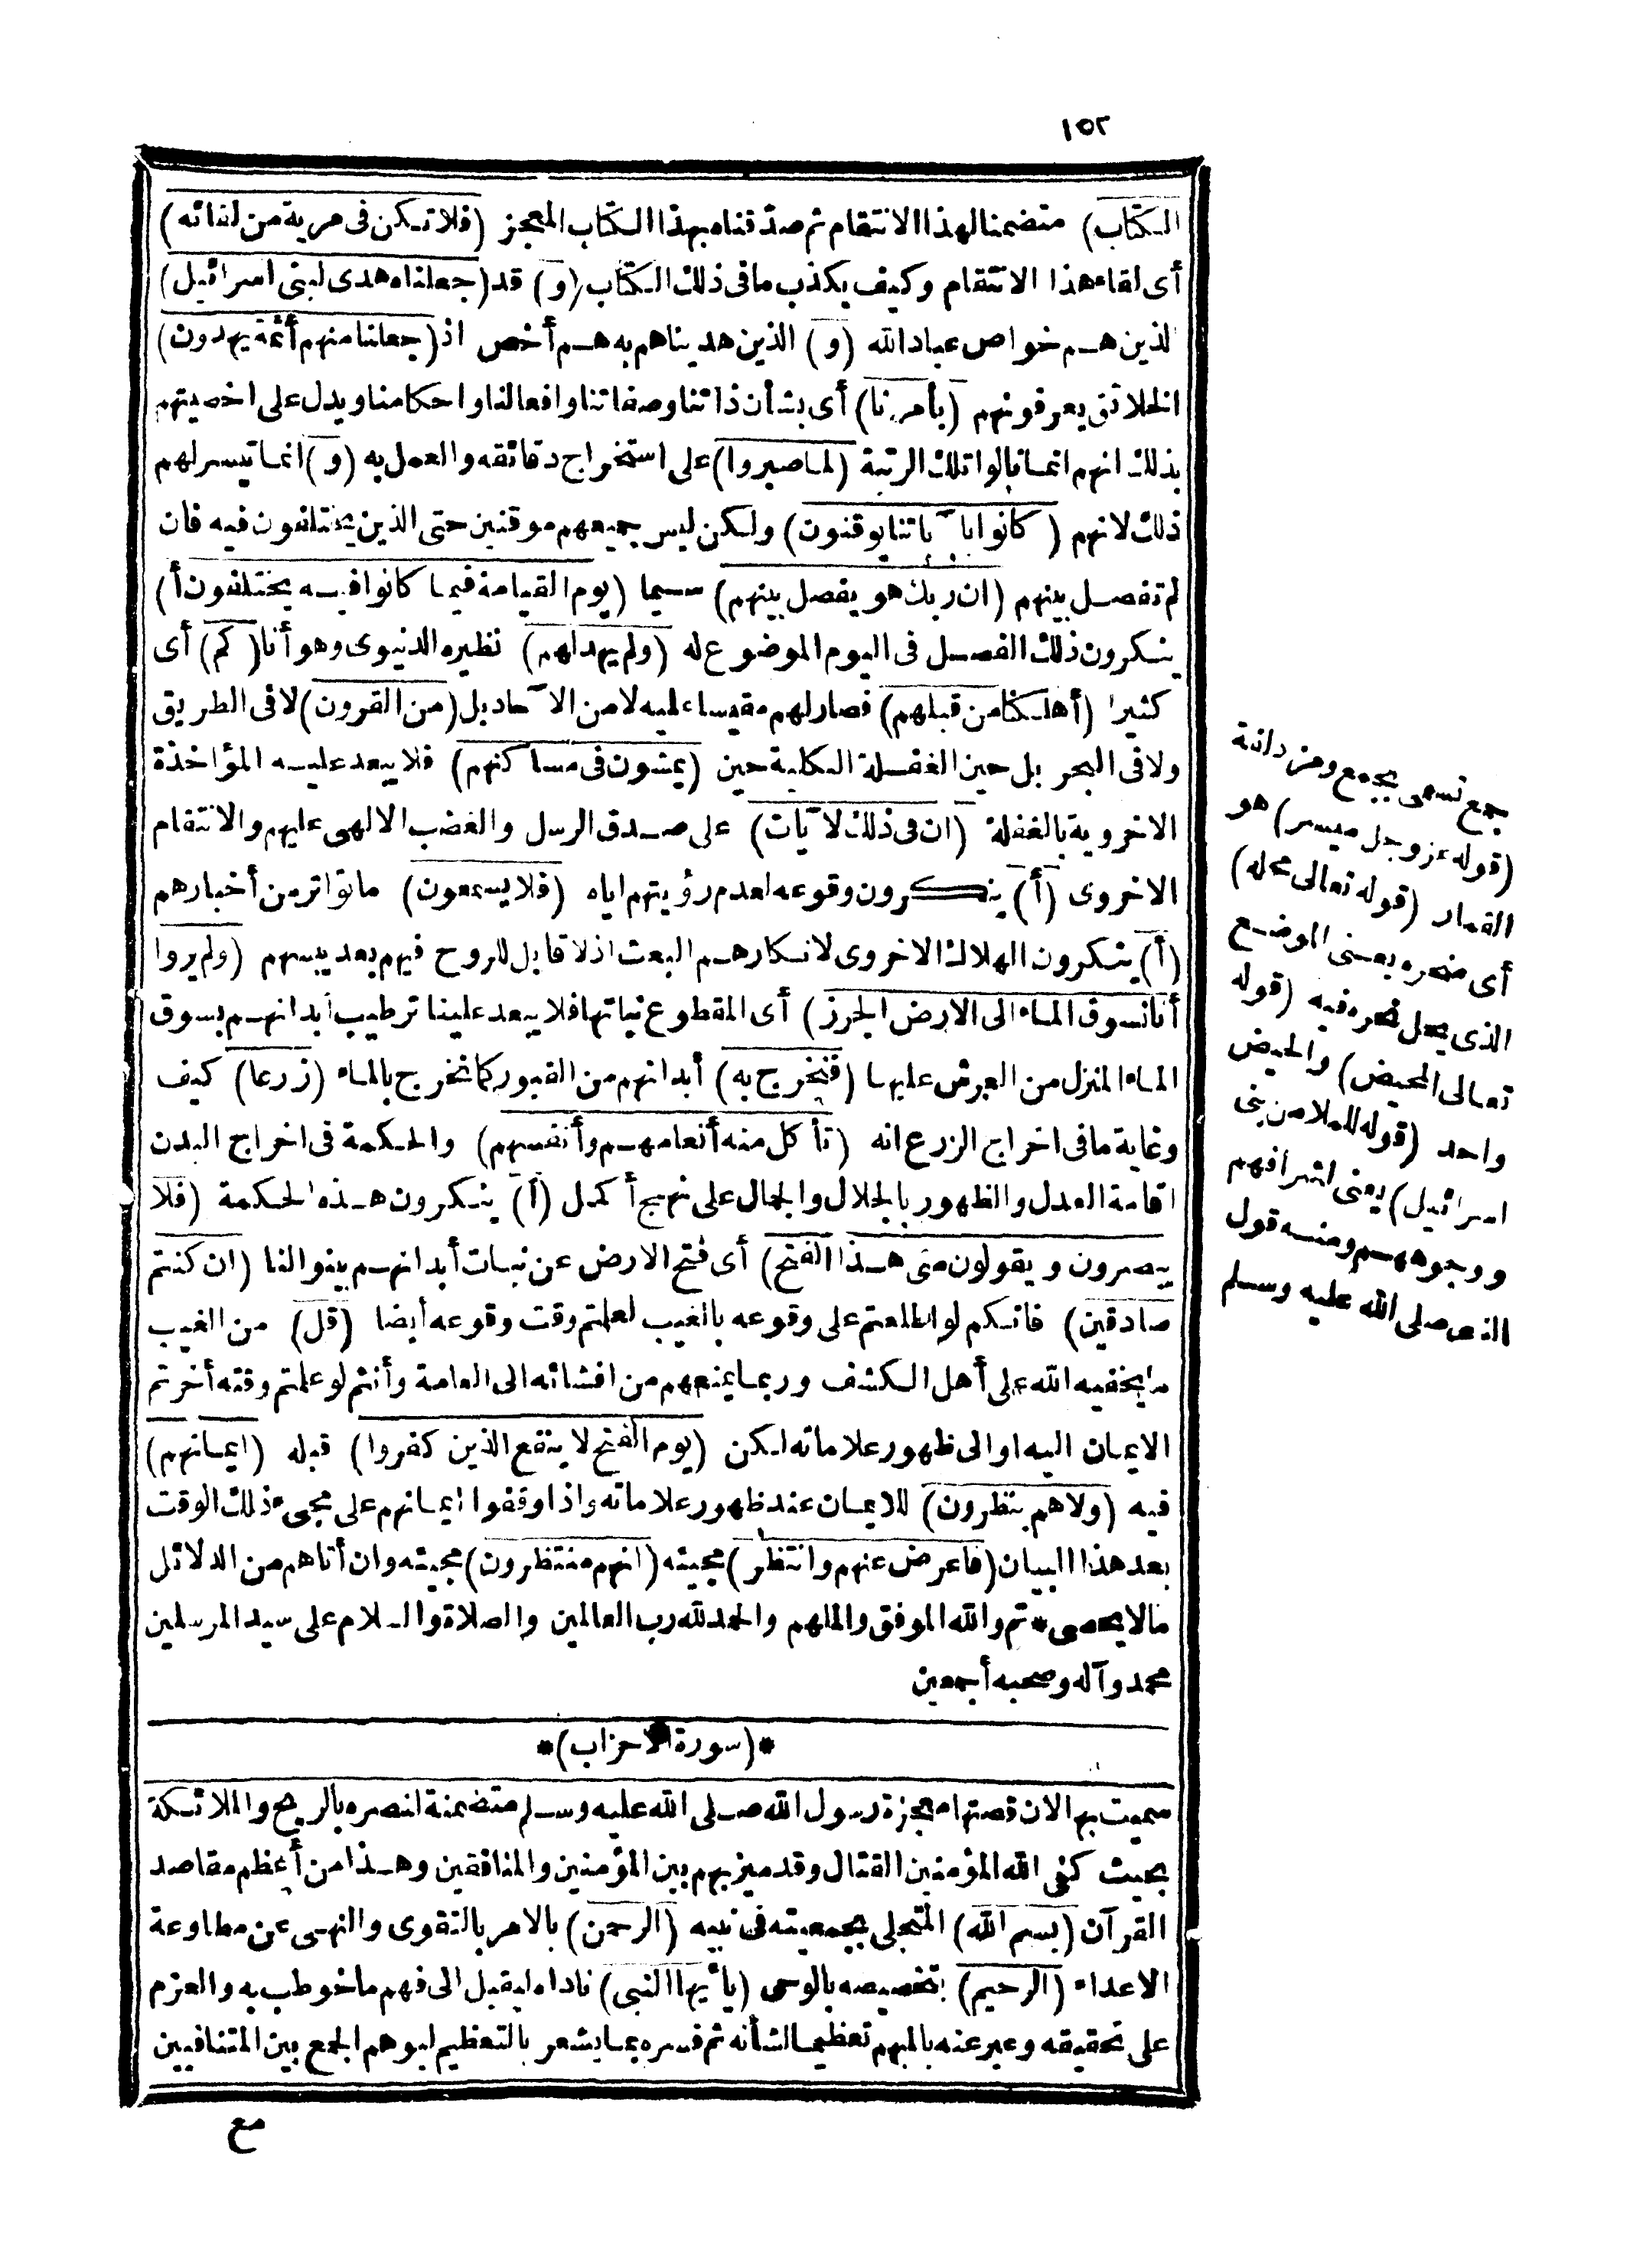 ١٥٢
الكتاب) متضمنا لهذا الانتقام ثم صدقناه بهذا الكتاب المعجز (فلا تكن فى مرية من لقائه)
أى لقاء هذا الانتقام وكيف يكذب ما فى ذلك الكتاب (و) قد (جعلناه هدى لبنى اسرائيل)
الذين هم خواص عباد الله (و) الذين هديناهم به هم أخص اذ (جعلنا منهم أئمة يهدون)
الخلائق يعرفونهم (بأمرنا) أى بشأن ذاتنا وصفاتنا وافعالنا واحكامنا ويدل على اخصيتهم
بذلك انهم انما نالوا تلك الرتبة (لما صبروا) على استخراج دقائقه والعمل به (و) انما تيسر لهم
ذلك لانهم (كانوا بآياتنا يوقنون) ولكن ليس جميعهم موقنين حتى الذين يختلفون فيه فان
لم تفصل بينهم (ان ربك هو يفصل بينهم) سيما (يوم القيامة فيما كانوا فيه يختلفون أ)
ينكرون ذلك الفصل فى اليوم الموضوع له (ولم يهد لهم) نظيره الدنيوى وهو أنا (كم) أى
كثيرا (أهلكنا من قبلهم) فصار لهم مقيسا عليه لا من الآحاد بل (من القرون) لا فى الطريق
ولا فى البحر بل حين الغفلة الكلية حين (يمشون فى مساكنهم) فلا يبعد عليه المؤاخذة
الاخروية بالغفلة (ان فى ذلك لآيات) على صدق الرسل والغضب الالهى عليهم والانتقام
الاخروى (أ) ينكرون وقوعه لعدم رؤيتهم اياه (فلا يسمعون) ما تواتر من أخبارهم
(أ) ينكرون الهلاك الاخروى لانكارهم البعث اذ لا قابل للروح فيهم بعد يبسهم (ولم يروا
أنا نسوق الماء الى الارض الجرز) أى المقطوع نباتها فلا يبعد علينا ترطيب أبدانهم بسوق
الماء المنزل من العرش عليها (فنخرج به) أبدانهم من القبور كما نخرج بالماء (زرعا) كيف
وغاية ما فى اخراج الزرع انه (تأكل منه أنعامهم وأنفسهم) والحكمة فى اخراج البدن
اقامة العدل والظهور بالجلال والجمال على نهج أكمل (أ) ينكرون هذه الحكمة (فلا
يبصرون و يقولون متى هذا الفتح) أى فتح الارض عن نبات أبدانهم بينوا لنا (ان كنتم
صادقين) فانكم لو اطلعتم على وقوعه بالغيب لعلمتم وقت وقوعه أيضا (قل) من الغيب
ما يخفيه الله على أهل الكشف وربما يمنعهم من افشائه الى العامة وأنتم لو علمتم وقته أخرتم
الايمان اليه او الى ظهور علاماته لكن (يوم الفتح لا ينفع الذين كفروا) قبله (ايمانهم)
فيه (ولا هم ينظرون) للايمان عند ظهور علاماته واذا وقفوا ايمانهم على مجىء ذلك الوقت
بعد هذا البيان (فاعرض عنهم وانتظر) مجيئه (انهم منتظرون) مجيئه وان أتاهم من الدلائل
مالا يحصى * تم والله الموفق والملهم والحمد لله رب العالمين والصلاة والسلام على سيد المرسلين
محمد وآله وصحبه أجمعين
*(سورة الاحزاب)*
سميت بها لان قصتها معجزة رسول الله صلى الله عليه وسلم متضمنة لنصره بالريح والملائكة
بحيث كفى الله المؤمنين القتال وقد ميز بهم بين المؤمنين والمنافقين وهذا من أعظم مقاصد
القرآن (بسم الله) المتجلى بجمعيته فى نبيه (الرحمن) بالامر بالتقوى والنهى عن مطاوعة
الاعداء (الرحيم) بتخصيصه بالوحى (يأيها النبى) ناداه ليقبل الى فهم ما خوطب به والعزم
على تحقيقه وعبر عنه بالمبهم تعظيما لشأنه ثم فسره بما يشعر بالتعظيم ليوهم الجمع بين المتنافيين
مع
جمع تسمى بجمع ومزدلفة
(قوله عز وجل ميسر) هو
القمار (قوله تعالى محله)
أى منحره يعنى الموضع
الذى يحل نحره فيه (قوله
تعالى المحيض) والحيض
واحد (قوله الملا من بنى
اسرائيل) يعنى اشرافهم
ووجوههم ومنه قول
النبى صلى الله عليه وسلم